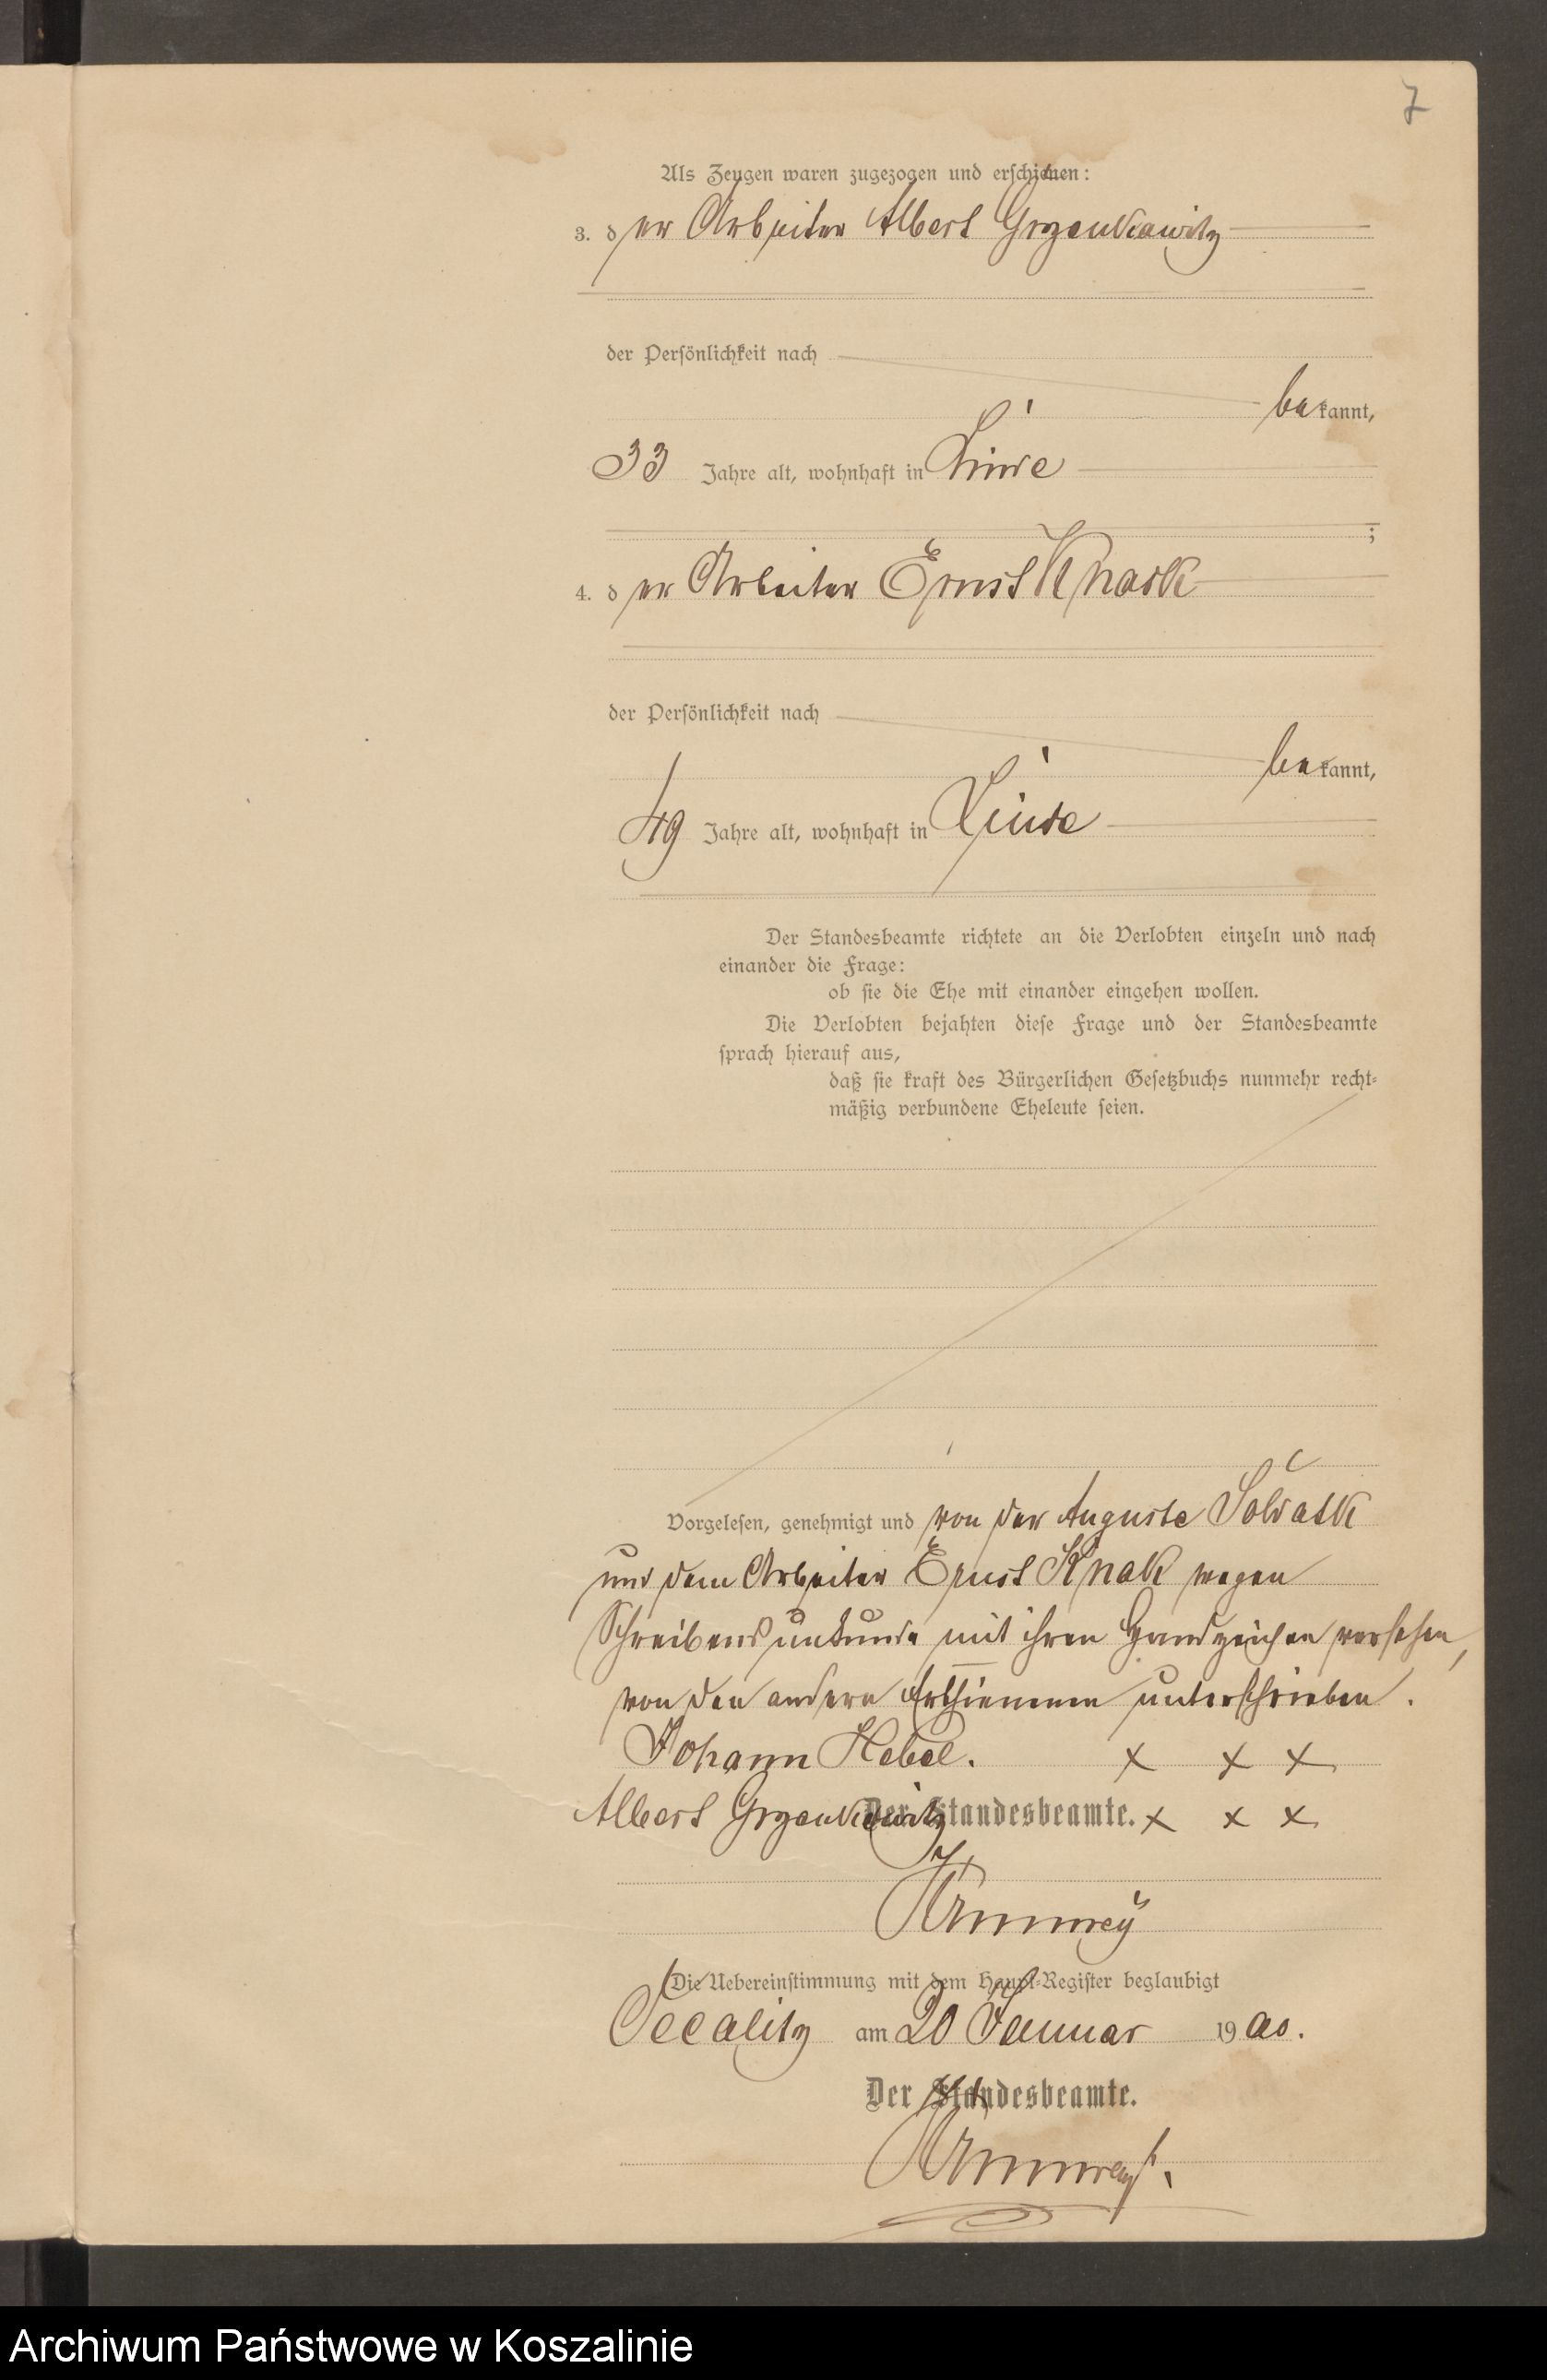 7
Als Zeugen waren zugezogen und erschienen:
3. der Arbeiter Albert Grzenkawitz
der Persönlichkeit nach
bekannt,
33 Jahre alt, wohnhaft in Linde
;
4. der Arbeiter Ernst Knack
der Persönlichkeit nach
bekannt,
49 Jahre alt, wohnhaft in Linde
Der Standesbeamte richtete an die Verlobten einzeln und nach
einander die Frage:
ob sie die Ehe mit einander eingehen wollen.
Die Verlobten bejahten diese Frage und der Standesbeamte
sprach hierauf aus,
daß sie kraft des Bürgerlichen Gesetzbuchs nunmehr recht-
mäßig verbundene Eheleute seien.
Vorgelesen, genehmigt und von der Auguste
und dem Arbeiter Ernst Knak wegen
Schreibensunkunde mit ihren Handzeichen versehen,
von den andern Erschienenen unterschrieben.
Johann Hebel. x x x
Albert Grzenkawitz x x x
Der Standesbeamte.
Die Uebereinstimmung mit dem Haupt-Register beglaubigt
am 20 Januar 1900.
Der Standesbeamte.
Archiwum Państwowe w Koszalinie